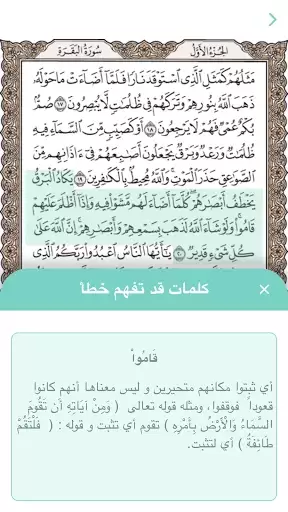 الجُزءُ الأَوَّلُ
سُورَةُ البَقَرَةِ
مَثَلُهُمْ كَمَثَلِ الَّذِي اسْتَوْقَدَ نَارًا فَلَمَّا أَضَاءَتْ مَا حَوْلَهُ
ذَهَبَ اللَّهُ بِنُورِهِمْ وَتَرَكَهُمْ فِي ظُلُمَاتٍ لَّا يُبْصِرُونَ ١٧ صُمٌّ
بُكْمٌ عُمْيٌ فَهُمْ لَا يَرْجِعُونَ ١٨ أَوْ كَصَيِّبٍ مِّنَ السَّمَاءِ فِيهِ
ظُلُمَاتٌ وَرَعْدٌ وَبَرْقٌ يَجْعَلُونَ أَصَابِعَهُمْ فِي ءَاذَانِهِم مِّنَ
الصَّوَاعِقِ حَذَرَ الْمَوْتِ وَاللَّهُ مُحِيطٌ بِالْكَافِرِينَ ١٩ يَكَادُ الْبَرْقُ
يَخْطَفُ أَبْصَارَهُمْ كُلَّمَا أَضَاءَ لَهُم مَّشَوْا فِيهِ وَإِذَا أَظْلَمَ عَلَيْهِمْ
قَامُوا وَلَوْ شَاءَ اللَّهُ لَذَهَبَ بِسَمْعِهِمْ وَأَبْصَارِهِمْ إِنَّ اللَّهَ عَلَى
كُلِّ شَيْءٍ قَدِيرٌ ٢٠ يَا أَيُّهَا النَّاسُ اعْبُدُوا رَبَّكُمُ الَّذِي
كلمات قد تفهم خطأ
قَامُواْ
أي ثبتوا مكانهم متحيرين و ليس معناها أنهم كانوا
قعوداً فوقفوا، ومثله قوله تعالى ( وَمِنْ آيَاتِهِ أَن تَقُومَ
السَّمَاءُ وَالْأَرْضُ بِأَمْرِهِ ) تقوم أي تثبت و قوله : ( فَلْتَقُمْ
طَائِفَةٌ ) أي لتثبت.